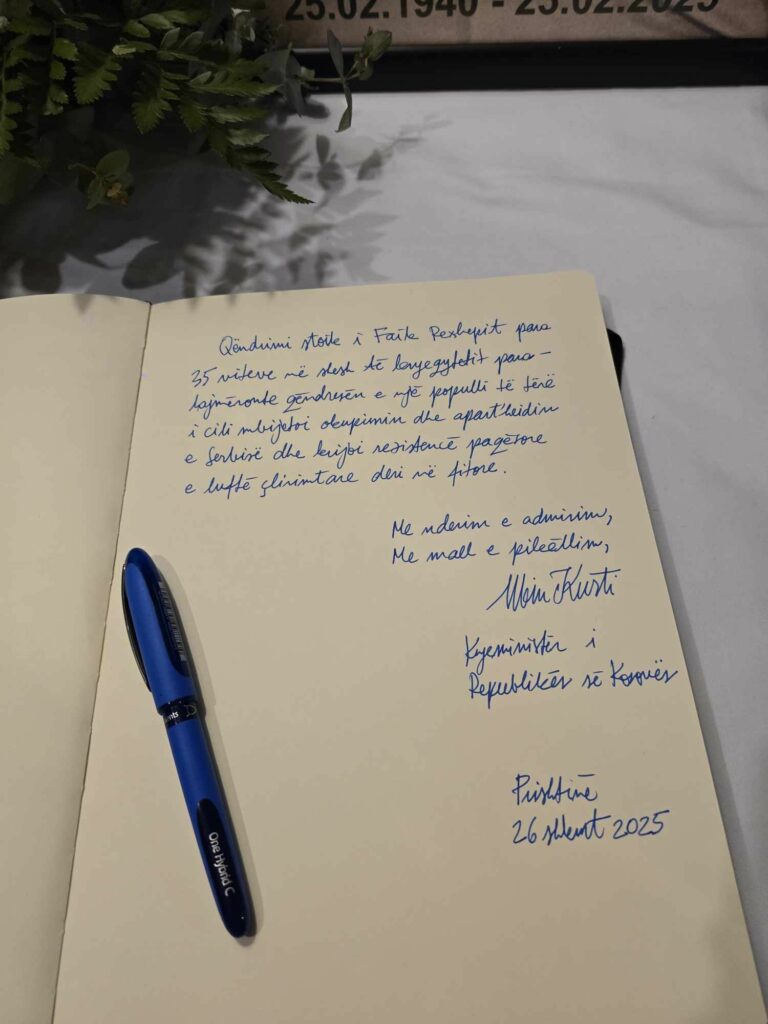 25.02.1940 - 25.02.2025
Qëndrimi stoik i Faik Rexhepit para
35 viteve në shesh të kryeqytetit para-
lajmëronte qëndresën e një populli të tërë
i cili mbijetoi okupimin dhe apartheidin
e Serbisë dhe krijoi rezistencë paqësore
e luftë çlirimtare deri në fitore.
Me nderim e admirim,
Me mall e pikëllim,
Albin Kurti
Kryeministër i
Republikës së Kosovës
Prishtinë
26 shkurt 2025
One Hybrid C